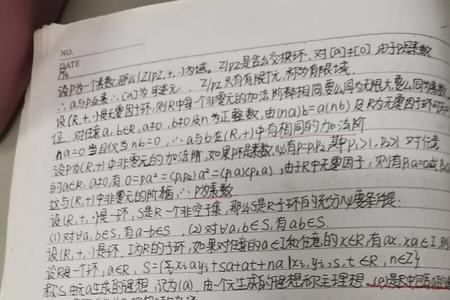 NO.
DATE
设P为一个素数,那么(Z/PZ,+,·)为域。Z/PZ是含幺交换环,对[a]≠[0],由于P是素数
∴a与P互素,∴[a]为可逆元. Z/PZ只有有限个元,称为有限域.
设(R,+,·)是无零因子环,则R中每个非零元的加法阶都相同,要么同为无限大,要么同为素数
证:对任意a,b∈R,a≠0,b≠0及n为正整数,由(na)b=a(nb)及R为无零因子环可知
na=0当且仅当nb=0,∴a与b在(R,+)中有相同的加法阶
设P为(R,+)中非零元的加法阶,如果P非素数,必有P=P₁P₂,其中P₁>1,P₂>1 对任意
的a∈R,a≠0,有0=pa²=(P₁P₂)a²=(P₁a)(P₂a),由于R中无零因子,则有P₁a=0或P₂a
数与(R,+)中非零元的阶 ∴P为素数
设(R,+,·)是一环,S是R一个非空子集,那么S是R子环的充分必要条件是.
(1)对∀a,b∈S,有a-b∈S. (2)对∀a,b∈S,有ab∈S.
设(R,+,·)是环,I为R的子环,如果对任意的a∈I和任意的x∈R,有ax,xa∈I则
设R是一个环,a∈R,S={∑xᵢayᵢ+sa+at+na|xᵢ,yᵢ,s,t∈R,n∈Z}
称S中元a生成的理想,记为(a),由一个元生成的理想称主理想.(a)是R中